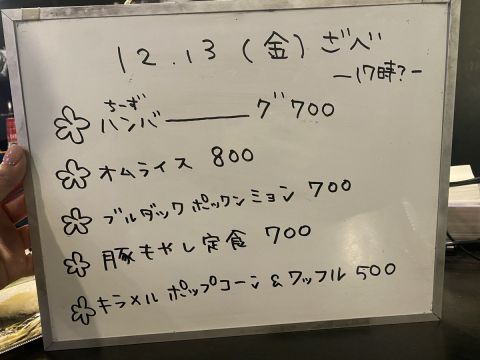 12.13(金)ざべ
ー17時?ー
ちーず
ハンバーーーグ 700
オムライス 800
ブルダックポックンミョン 700
豚もやし定食 700
キラメルポップコーン&ワッフル 500